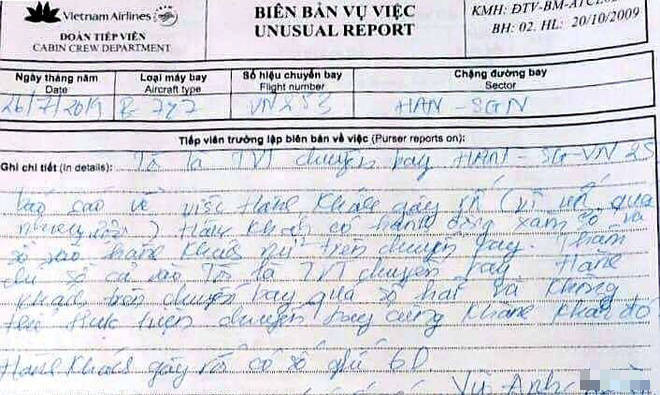 Vietnam Airlines
ĐOÀN TIẾP VIÊN
CABIN CREW DEPARTMENT
BIÊN BẢN VỤ VIỆC
UNUSUAL REPORT
KMH: ĐTV-BM-ATCL
BH: 02. HL: 20/10/2009
Ngày tháng năm
Date
Loại máy bay
Aircraft type
Số hiệu chuyến bay
Flight number
Chặng đường bay
Sector
26/7/2019 B 787 VN253 HAN - SGN
Tiếp viên trưởng lập biên bản về việc (Purser reports on):
Ghi chi tiết (In details): Tôi là TVT chuyến bay HAN - SG - VN 25
báo cáo về việc Hành Khách gây rối (vì uống quá
nhiều rượu) Hành Khách có hành động xâm cô và
sờ vào hành Khách nữ trên chuyến bay. Thậm
chí sờ cả vào Tôi là TVT chuyến bay. Hành
Khách trên chuyến bay quá sợ hãi và không
thể thực hiện chuyến bay cùng Khách đó
Hành Khách gây rối có số ghế 6D.
Vũ Anh